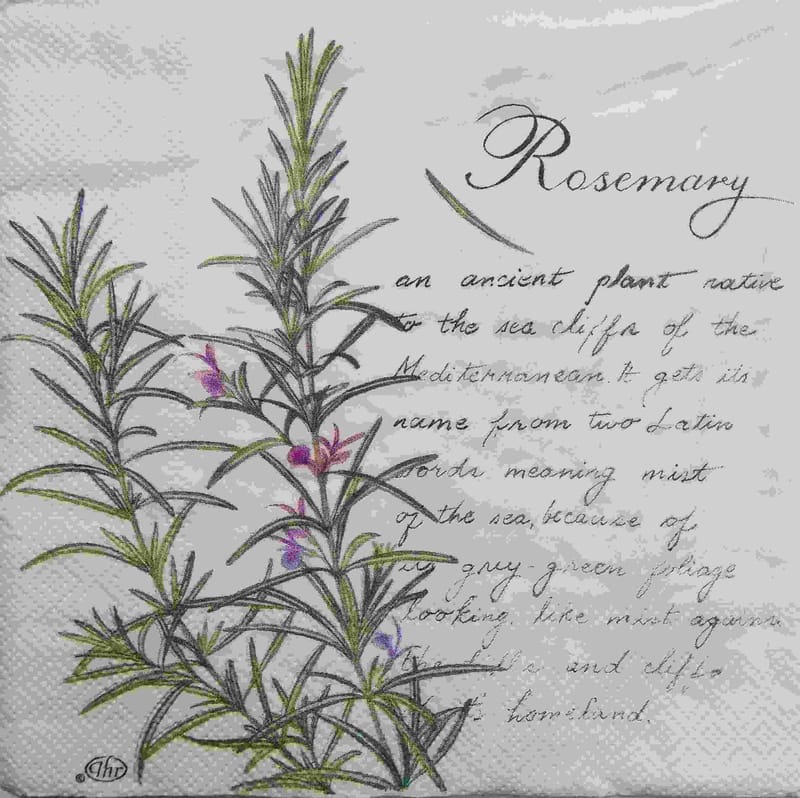 Rosemary
an ancient plant native
to the sea cliffs of the
Mediterranean. It gets its
name from two Latin
words meaning mist
of the sea, because of
its grey-green foliage
looking like mist against
the hills and cliffs
homeland.
Ihr